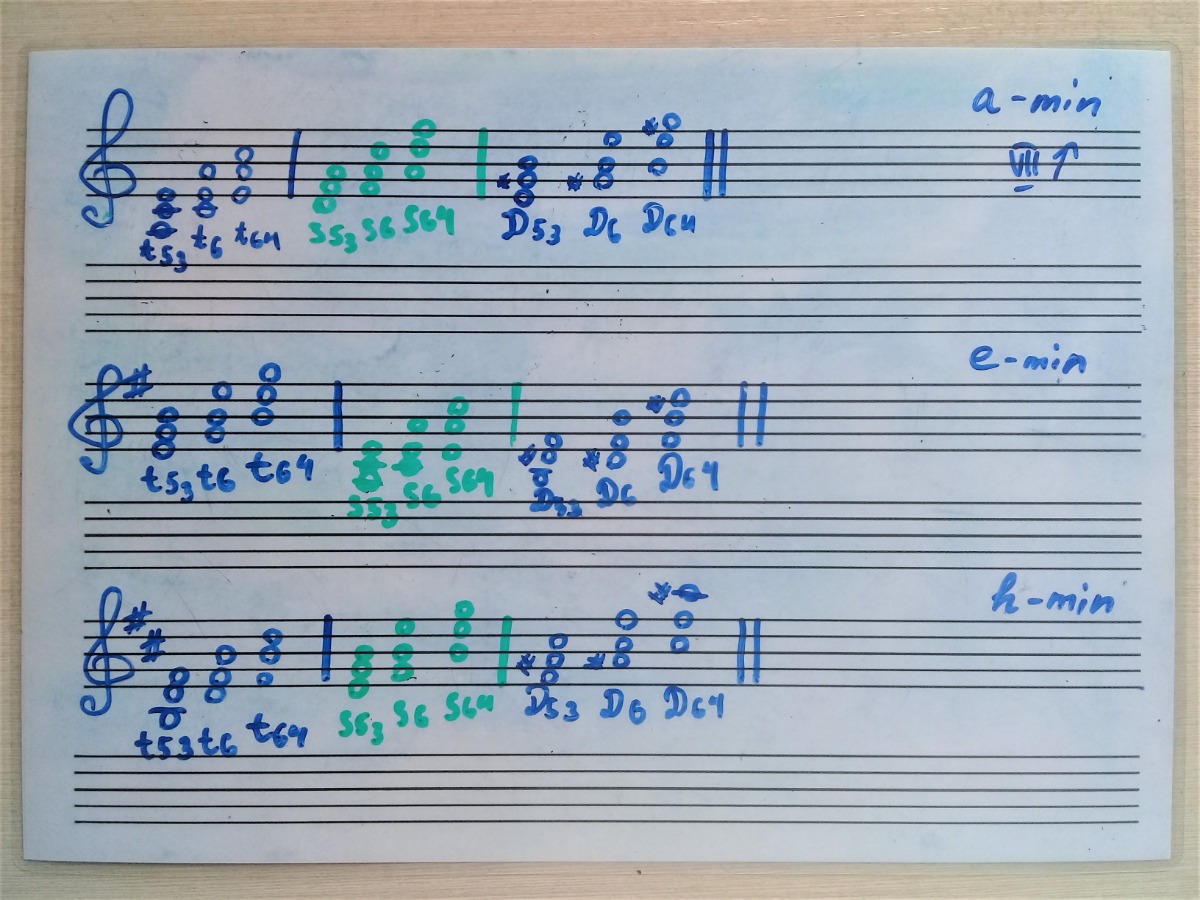 a-min
VII ↑
t53 t6 t64 S53 S6 S64 D53 D6 D64
e-min
t53 t6 t64 S53 S6 S64 D53 D6 D64
h-min
t53 t6 t64 S53 S6 S64 D53 D6 D64